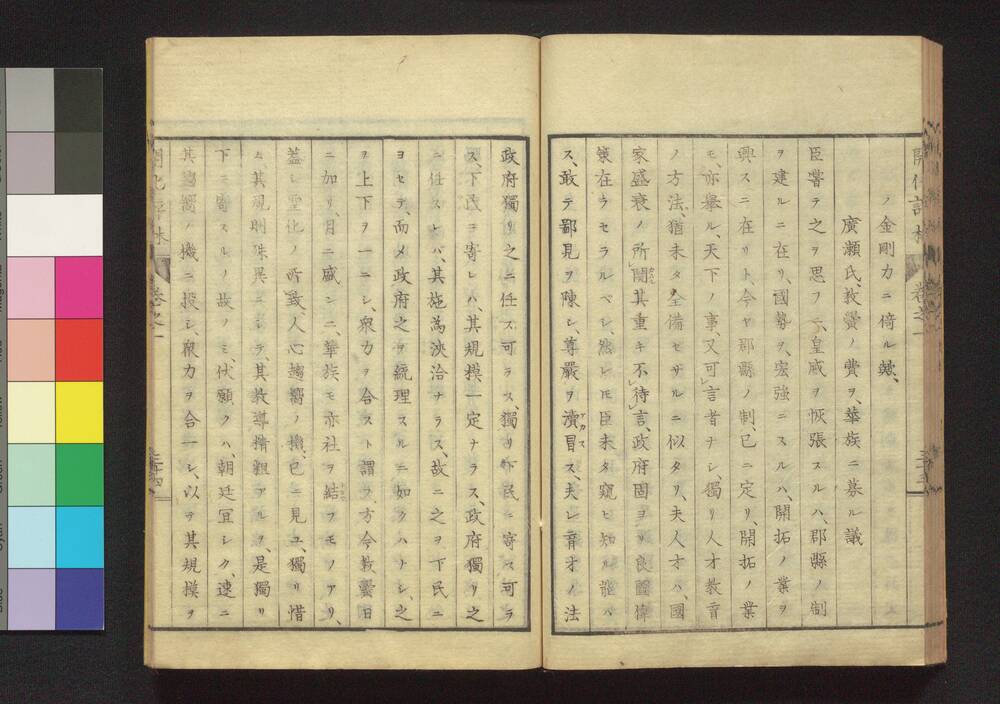 ノ金剛力ニ倚ル歟、
廣瀬氏、教黌ノ費ヲ、華族ニ募ル議
臣嘗テ之ヲ思フニ、皇威ヲ恢張スルハ、郡縣ノ制
ヲ建ルニ在リ、國勢ヲ、宏強ニスルハ、開拓ノ業ヲ
興スニ在リト、今ヤ郡縣ノ制、已ニ定リ、開拓ノ業
モ、亦擧ル、天下ノ事、又可言者ナシ、獨リ人才教育
ノ方法、猶未タ全備セサルニ似タリ、夫人才ハ、國
家盛衰ノ所関其重キ不待言、政府固ヨリ良圖偉
策在ラセラルベシ、然レ𪜈臣未タ窺ヒ知ル能ハ
ス、敢テ鄙見ヲ陳シ、尊嚴ヲ瀆冒ス、夫レ育才ノ法
政府獨リ之ニ任ス可ラス、獨リ下民ニ寄ス可ラ
ス、下民ニ寄レハ、其規模一定ナラス、政府獨リ之
ニ任スレバ、其施為浹洽ナラス、故ニ之ヲ下民ニ
ヨセテ、而メ政府之ヲ統理スルニ如クハナシ、之
ヲ上下ヲ一ニシ、衆力ヲ合スト謂フ、方今教黌日
ニ加リ、月ニ盛ンニ、華族モ亦社ヲ結フモノアリ、
蓋シ聖化ノ所致、人心趨嚮ノ機、已ニ見ユ、獨リ惜
ム、其規則殊異ニシテ、其教導精粗アルヲ、是獨リ
下ニ寄スルノ故ノミ、伏願クハ、朝廷冝シク、速ニ
其趨嚮ノ機ニ投シ、衆力ヲ合一シ、以テ其規模ヲ